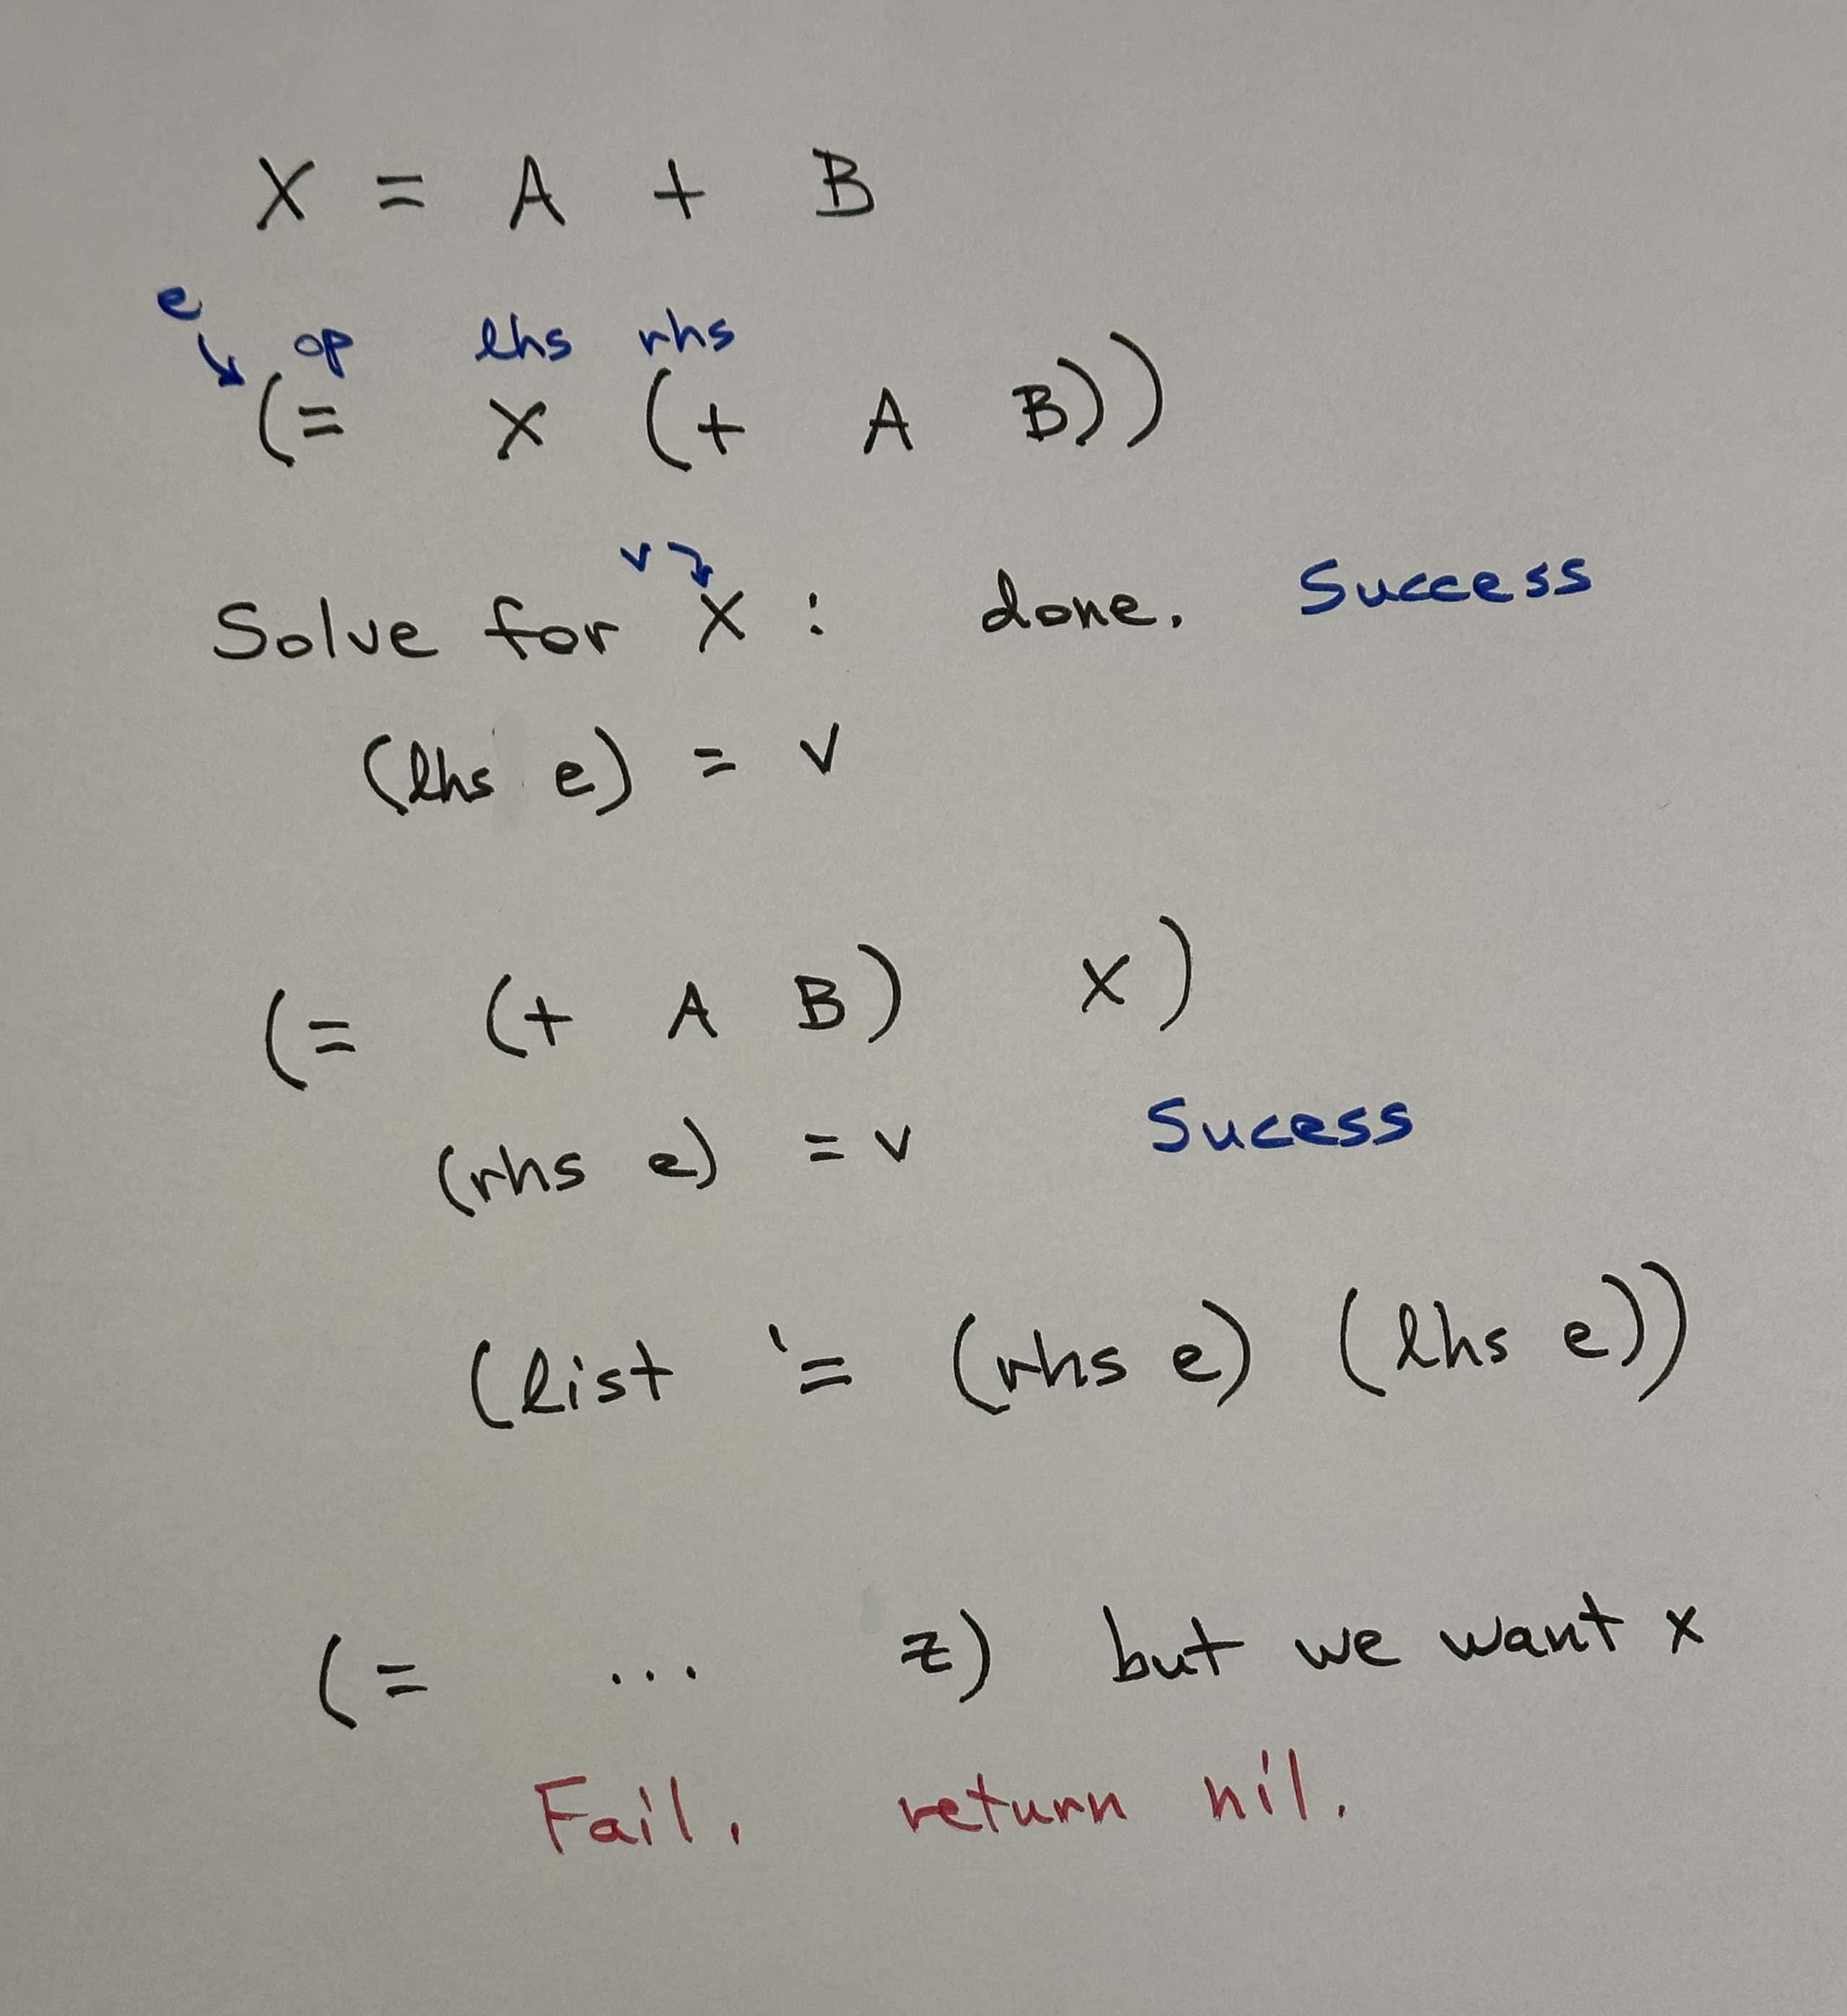 X = A + B
e
op lhs rhs
(= X (+ A B))
v
Solve for X : done. Success
(lhs e) = v
(= (+ A B) X)
(rhs e) = v Sucess
(list '= (rhs e) (lhs e))
(= ... z) but we want x
Fail. return nil.